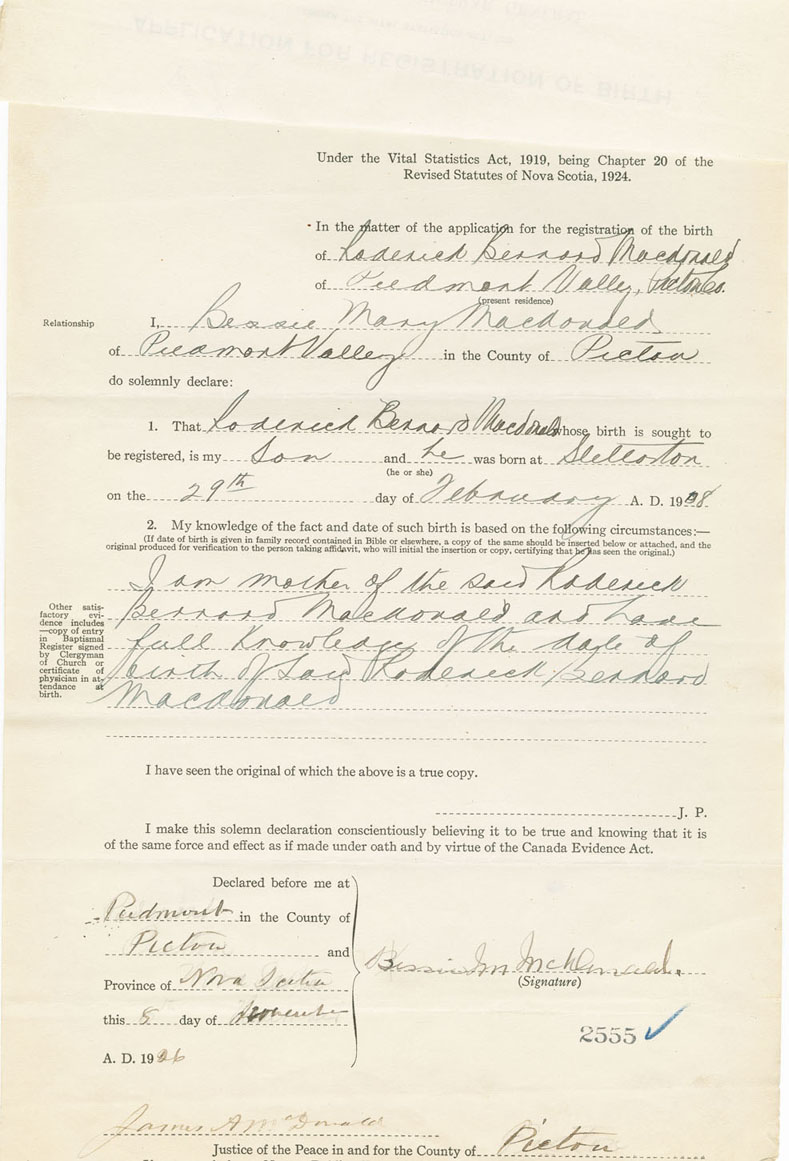 Under the Vital Statistics Act, 1919, being Chapter 20 of the
Revised Statutes of Nova Scotia, 1924.
In the matter of the application for the registration of the birth
of Roderick Bernard Macdonald
of Piedmont Valley, Picton Co.
(present residence)
Relationship
I, Bessie Mary Macdonald
of Piedmont Valley in the County of Picton
do solemnly declare:
1. That Roderick Bernard Macdonald whose birth is sought to
be registered, is my Son and he was born at Stellarton
(he or she)
on the 29th day of February A. D. 1908
2. My knowledge of the fact and date of such birth is based on the following circumstances:—
(If date of birth is given in family record contained in Bible or elsewhere, a copy of the same should be inserted below or attached, and the
original produced for verification to the person taking affidavit, who will initial the insertion or copy, certifying that he has seen the original.)
I am mother of the said Roderick
Bernard Macdonald and have
full Knowledge of the date of
birth of Said Roderick Bernard
Macdonald
Other satis-
factory evi-
dence includes
—copy of entry
in Baptismal
Register signed
by Clergyman
of Church or
certificate of
physician in at-
tendance at
birth.
I have seen the original of which the above is a true copy.
J. P.
I make this solemn declaration conscientiously believing it to be true and knowing that it is
of the same force and effect as if made under oath and by virtue of the Canada Evidence Act.
Declared before me at
Piedmont in the County of
Picton and
Province of Nova Scotia
this 8 day of November
A. D. 1926
Bessie M McDonald.
(Signature)
2555
James A McDonald
Justice of the Peace in and for the County of Picton